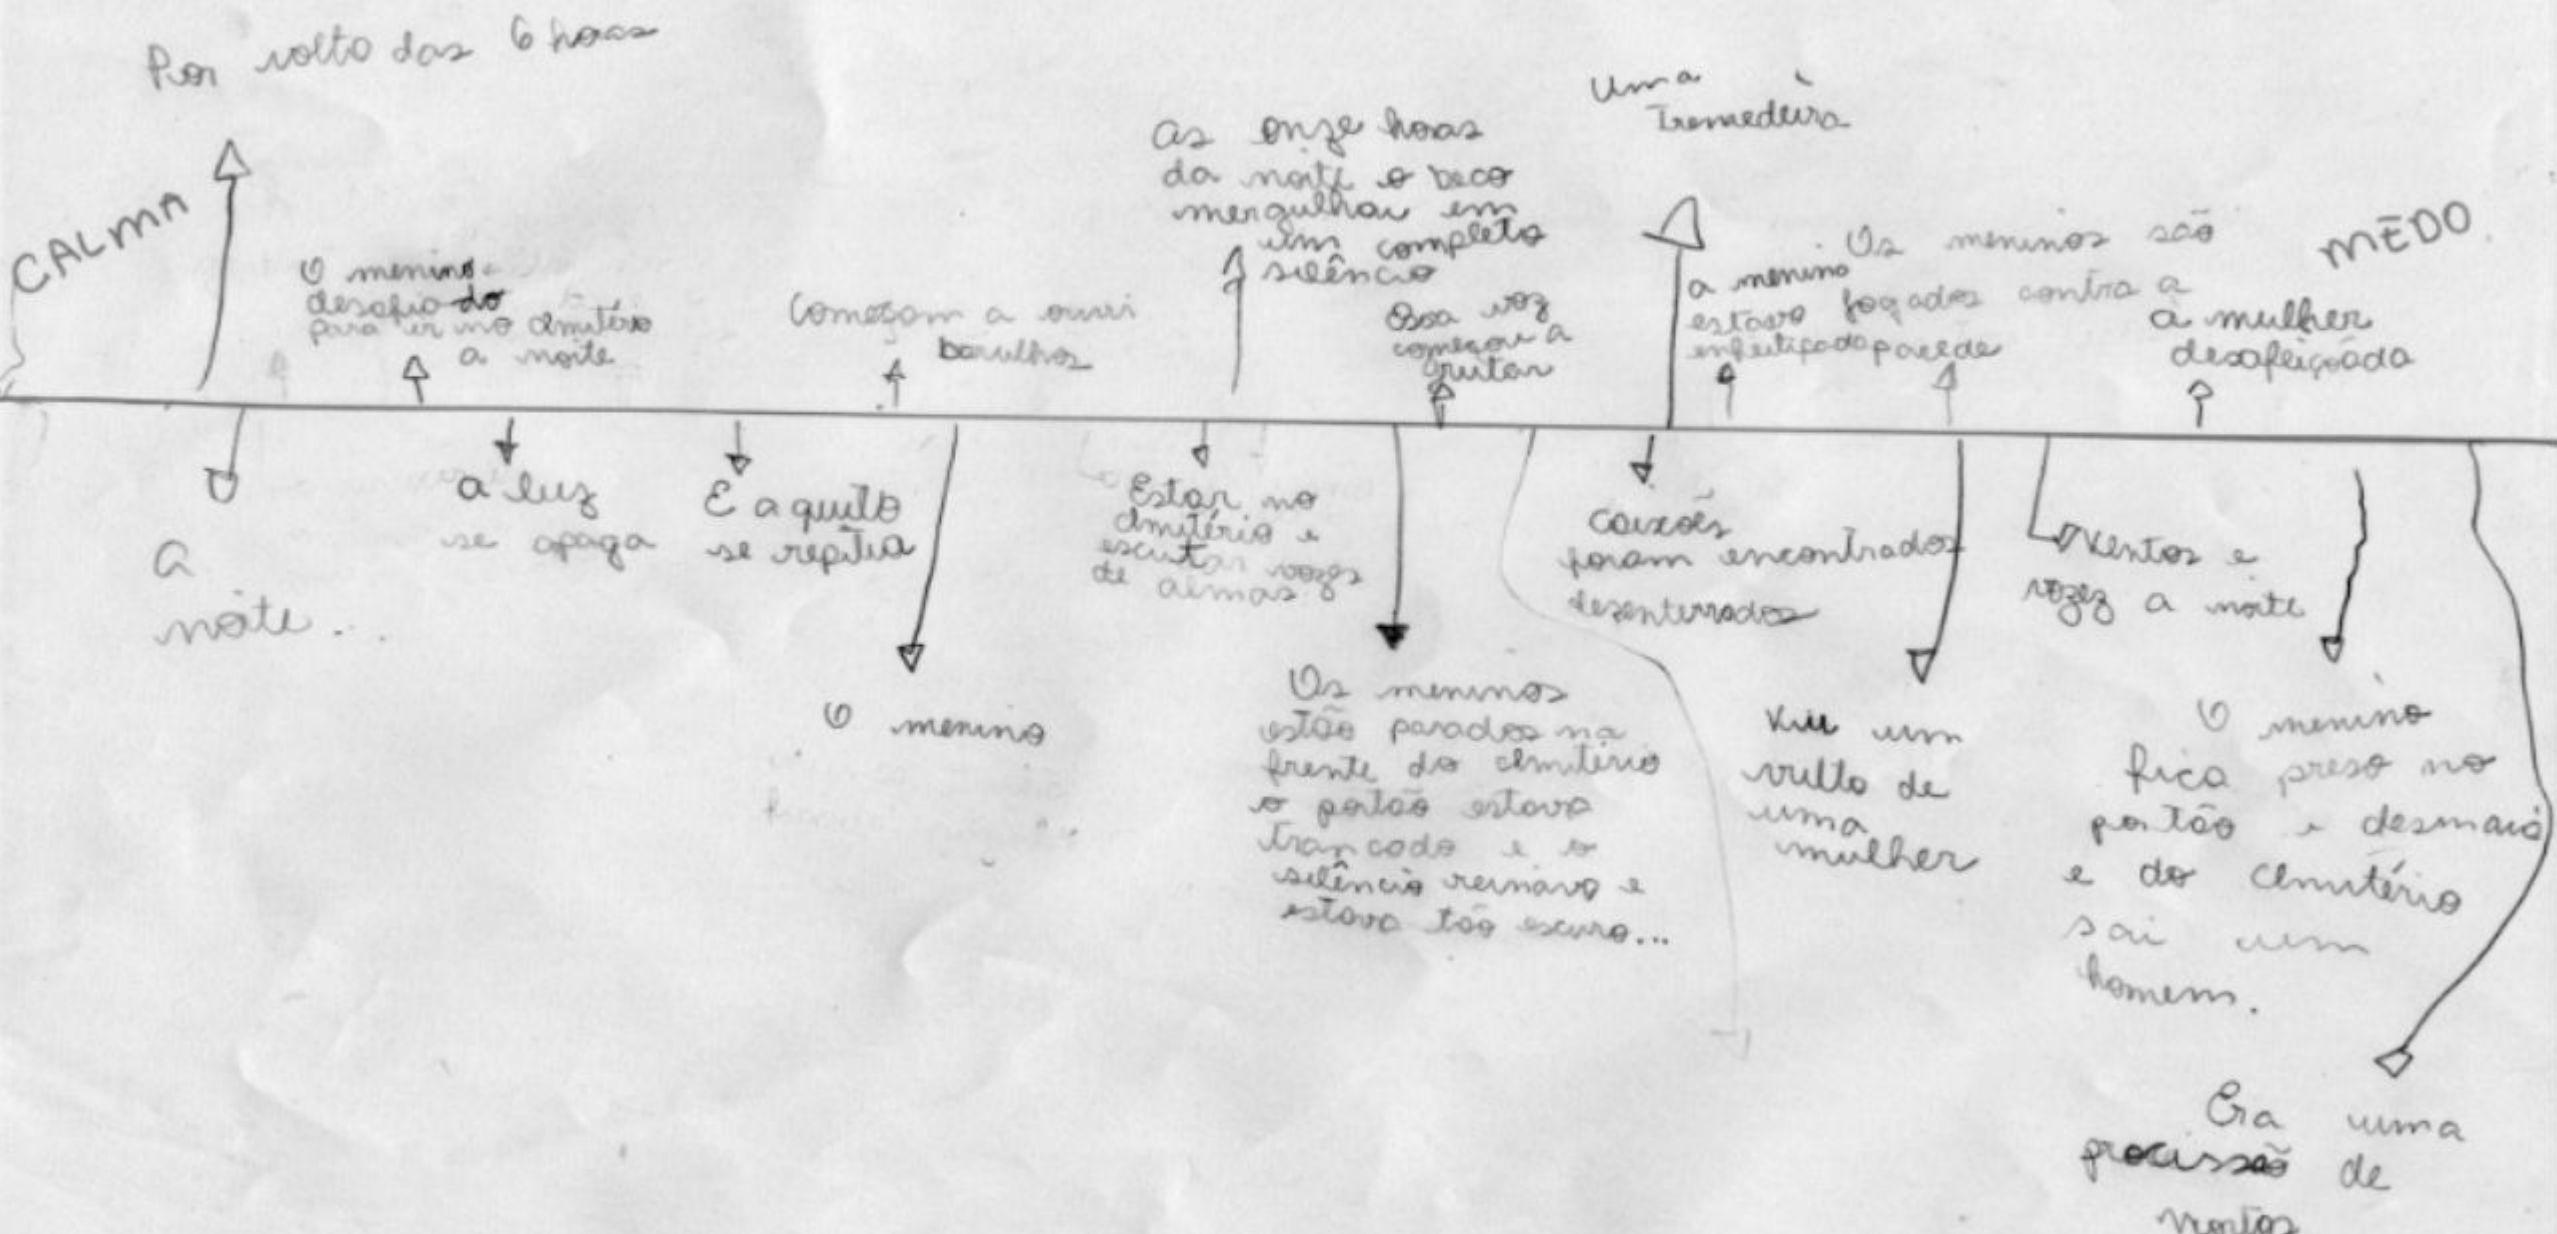 Por volta das 6 horas
CALMA
O menino
desafiado
para ir no cmitério
a noite
Começam a ouvi
barulhos
As onze horas
da noite o beco
mergulhou em
um completo
silêncio
Essa voz
começou a
gritar
Uma
Tremedeira
a menina
estava
enfeitiçada
Os meninos são
jogados contra a
parede
MÊDO
a mulher
desafeiçoada
A
noite...
a luz
se apaga
E a quilo
se repitia
O menino
Estar no
cmitério e
escutar vozes
de almas
Os meninos
estão parados na
frente do cmitério
o portão estava
trancado e o
silêncio reinava e
estava tão escuro...
Caixões
foram encontrados
desenterrados
Viu um
vulto de
uma
mulher
Ventos e
vozez a noite
O menino
fica preso no
portão e desmaia
e do cmitério
sai um
homem.
Era uma
procissão de
mortos